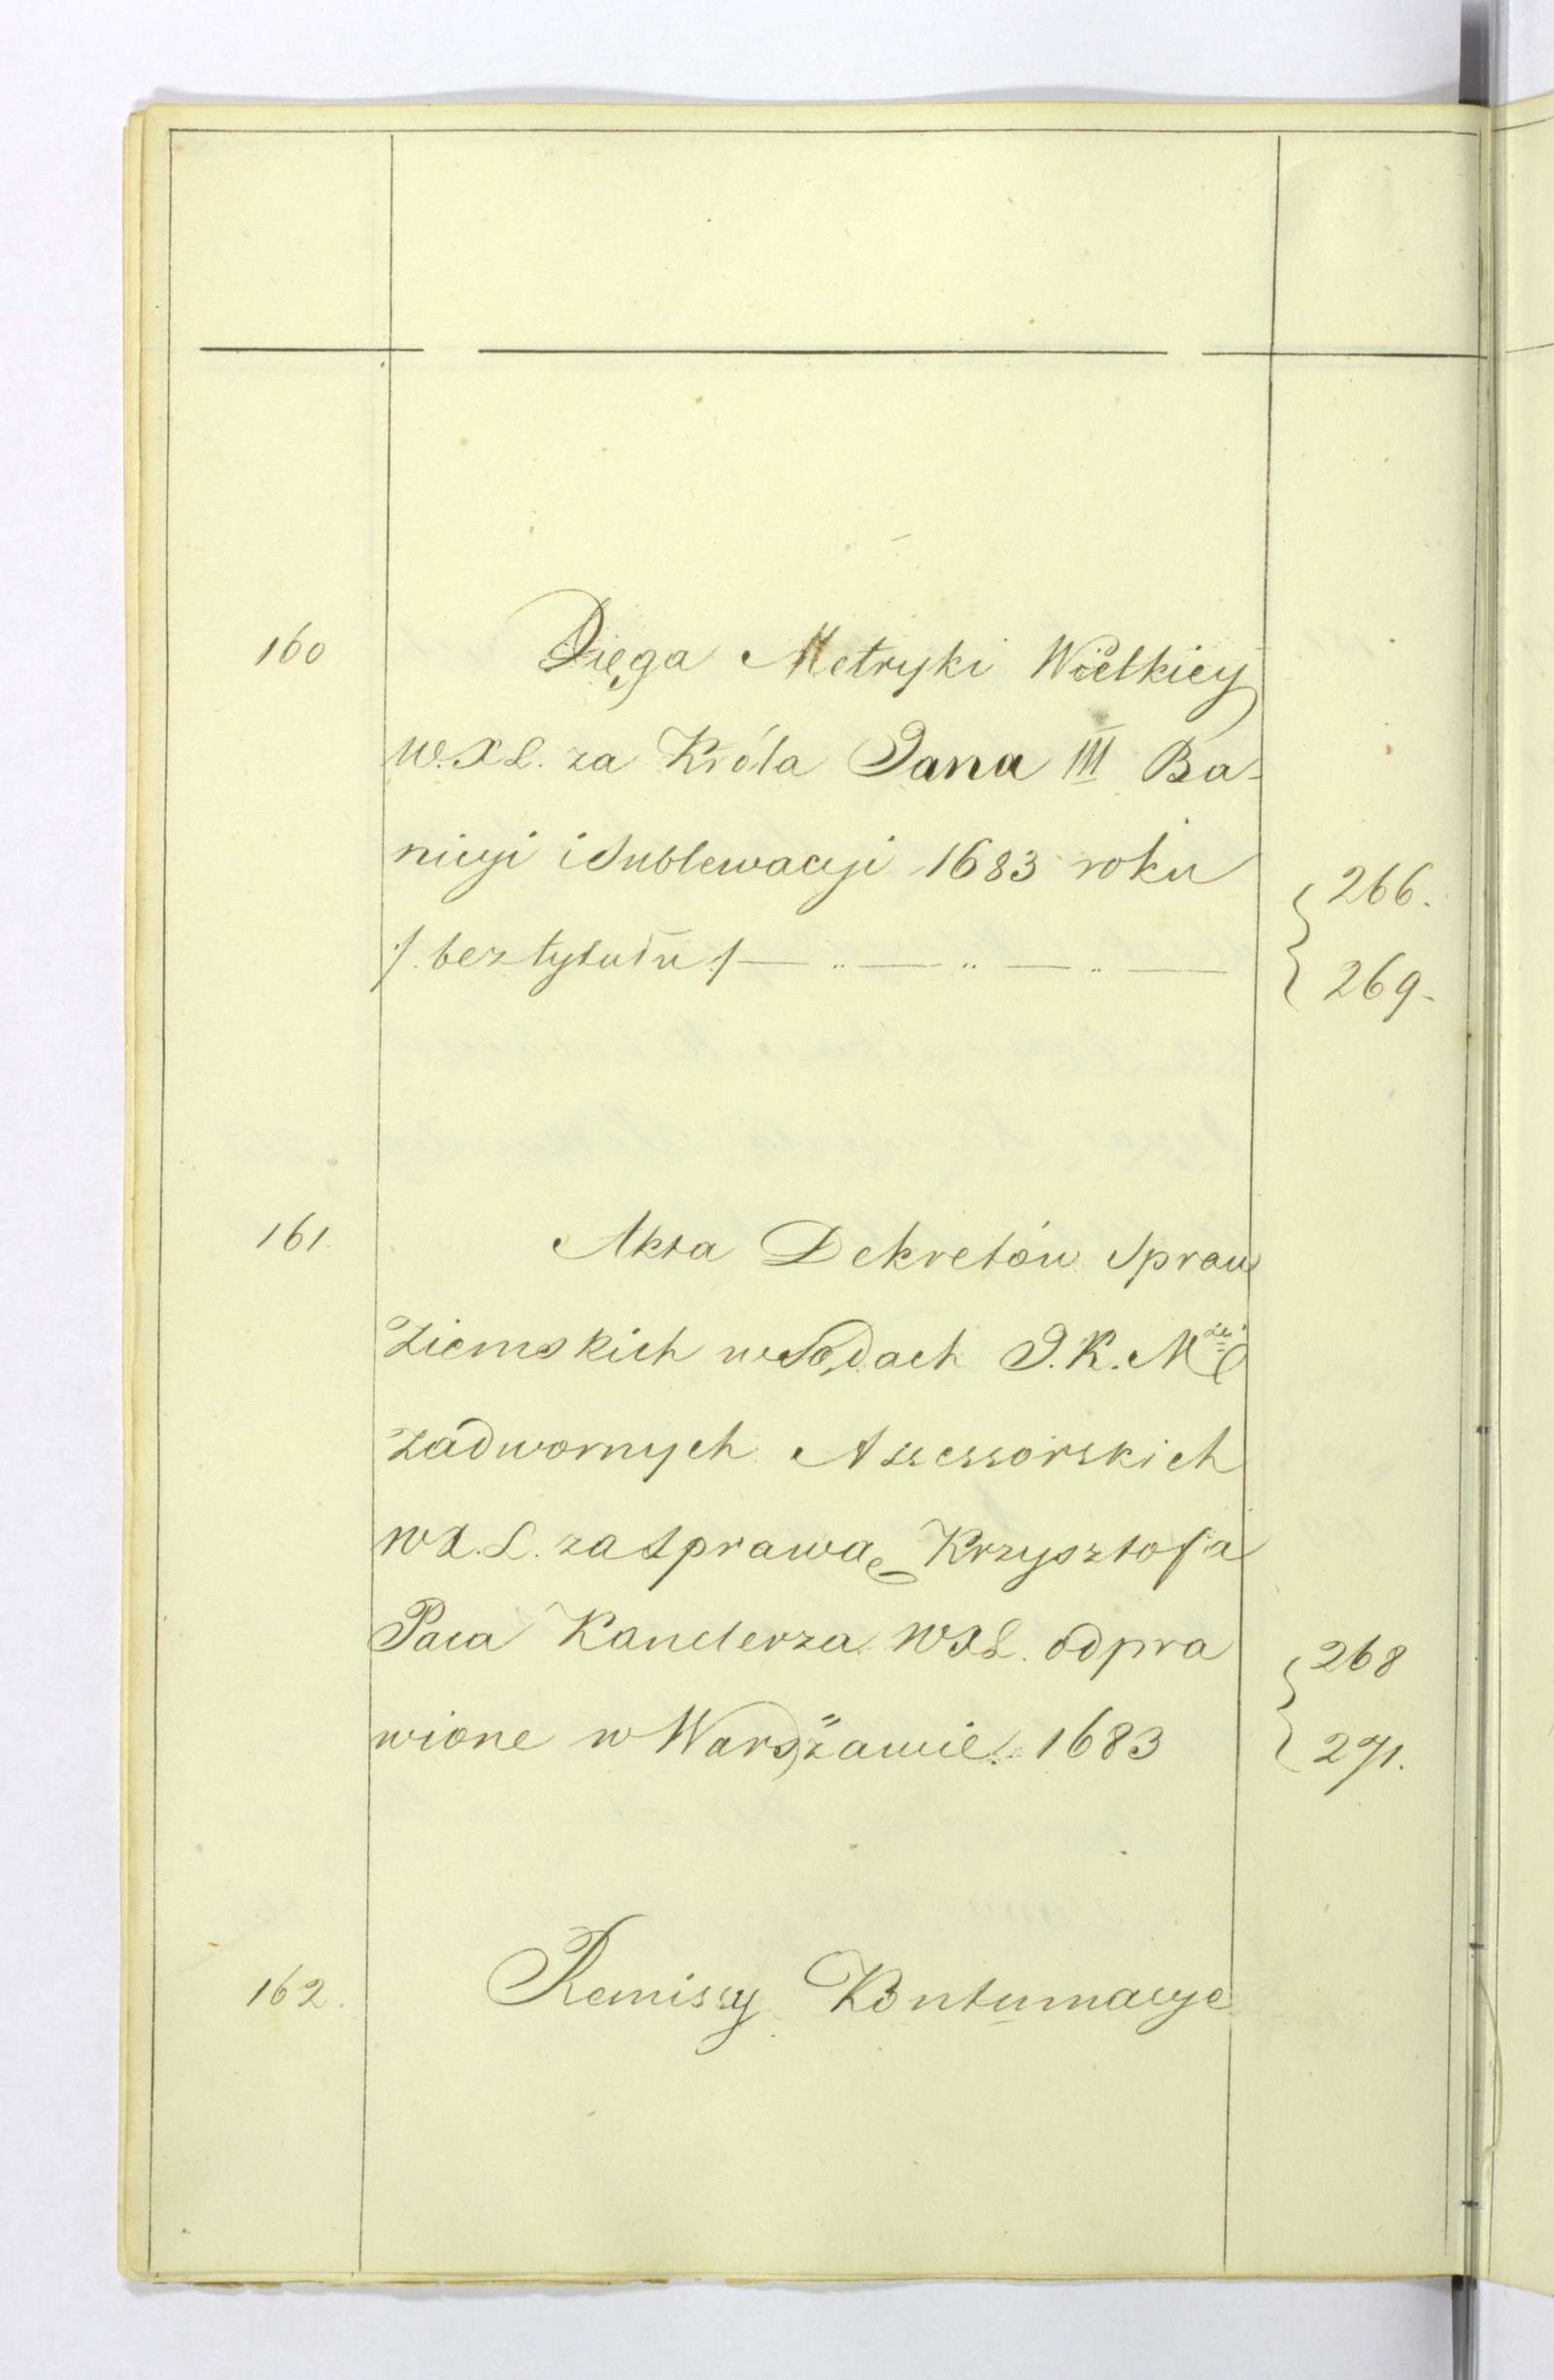 160 Xięga Metryki Wielkiey
W.X L. za Króla Jana III Ba-
nicyi i Sublewacyi 1683 roku
266.
/. bez tytułu ./ — „ — „ — „ —
269.
161. Akta Dekretów Spraw
Ziemskich w Sądach J. K. Mści
Zadwornych Assessorskich
WX.L. za Sprawą Krzysztofa
Paca Kanclerza WXL. odpra
268
wione w Warszawie. 1683
271.
162. Remissy Kontumacye